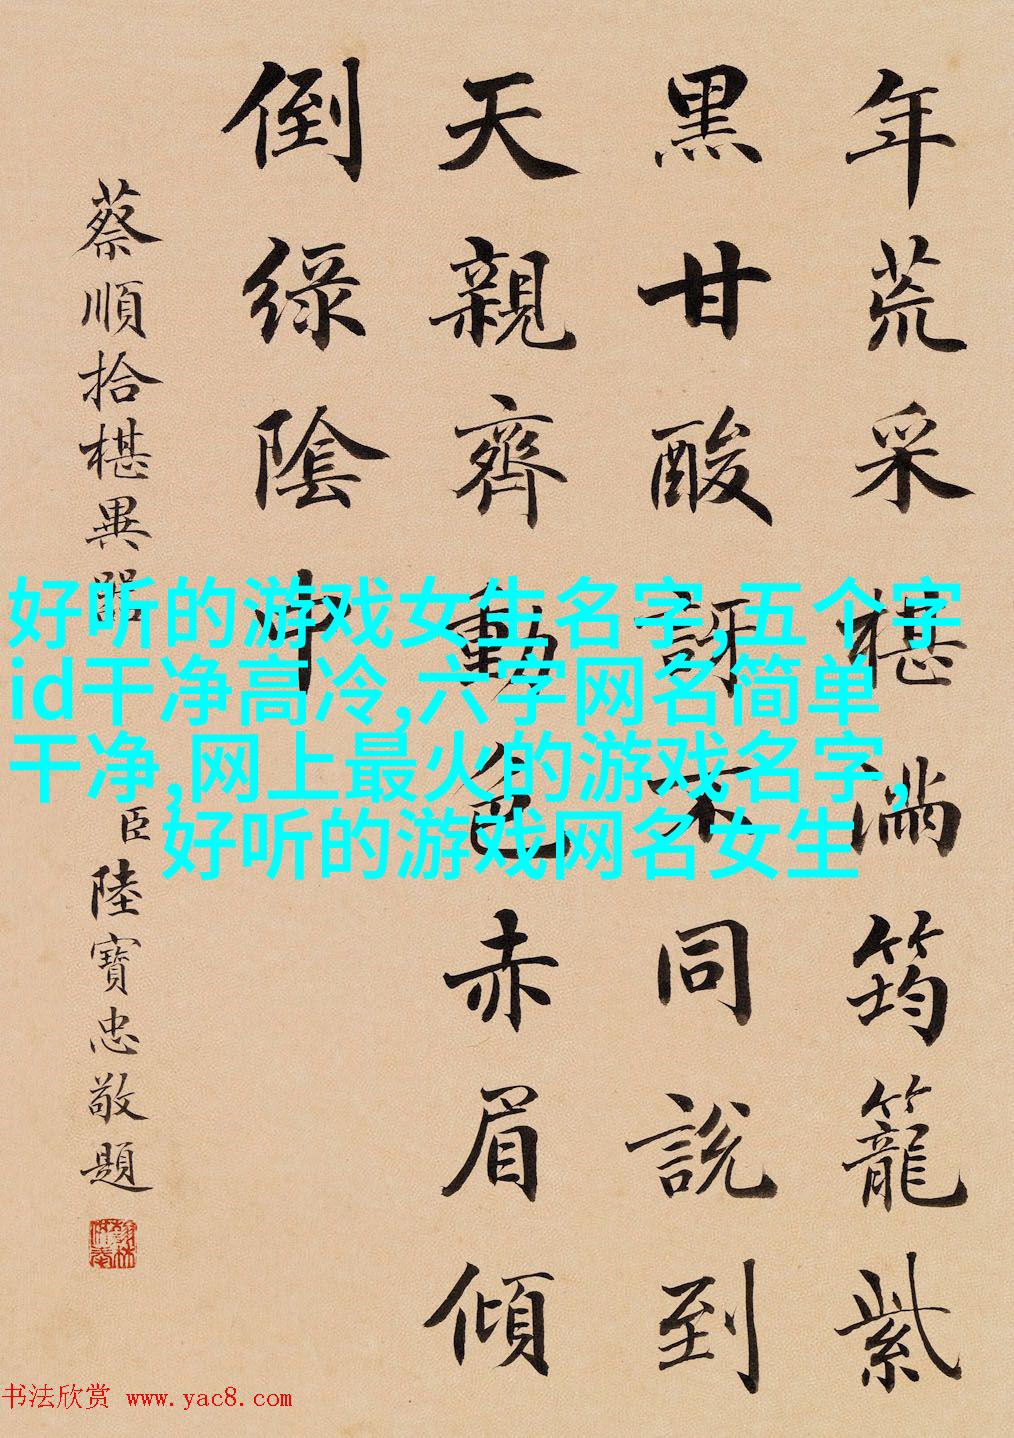 年荒采椹滿筠籠紫
黑甘酸訝不同說到
天親齊動色赤眉傾
倒綠陰中
蔡順拾椹異器
臣陸寶忠敬題
翰林供奉
好听的游戏女生名字,五个字
id干净高冷,六字网名简单
干净,网上最火的游戏名字,
好听的游戏网名女生
书法欣赏 www.yac8.com